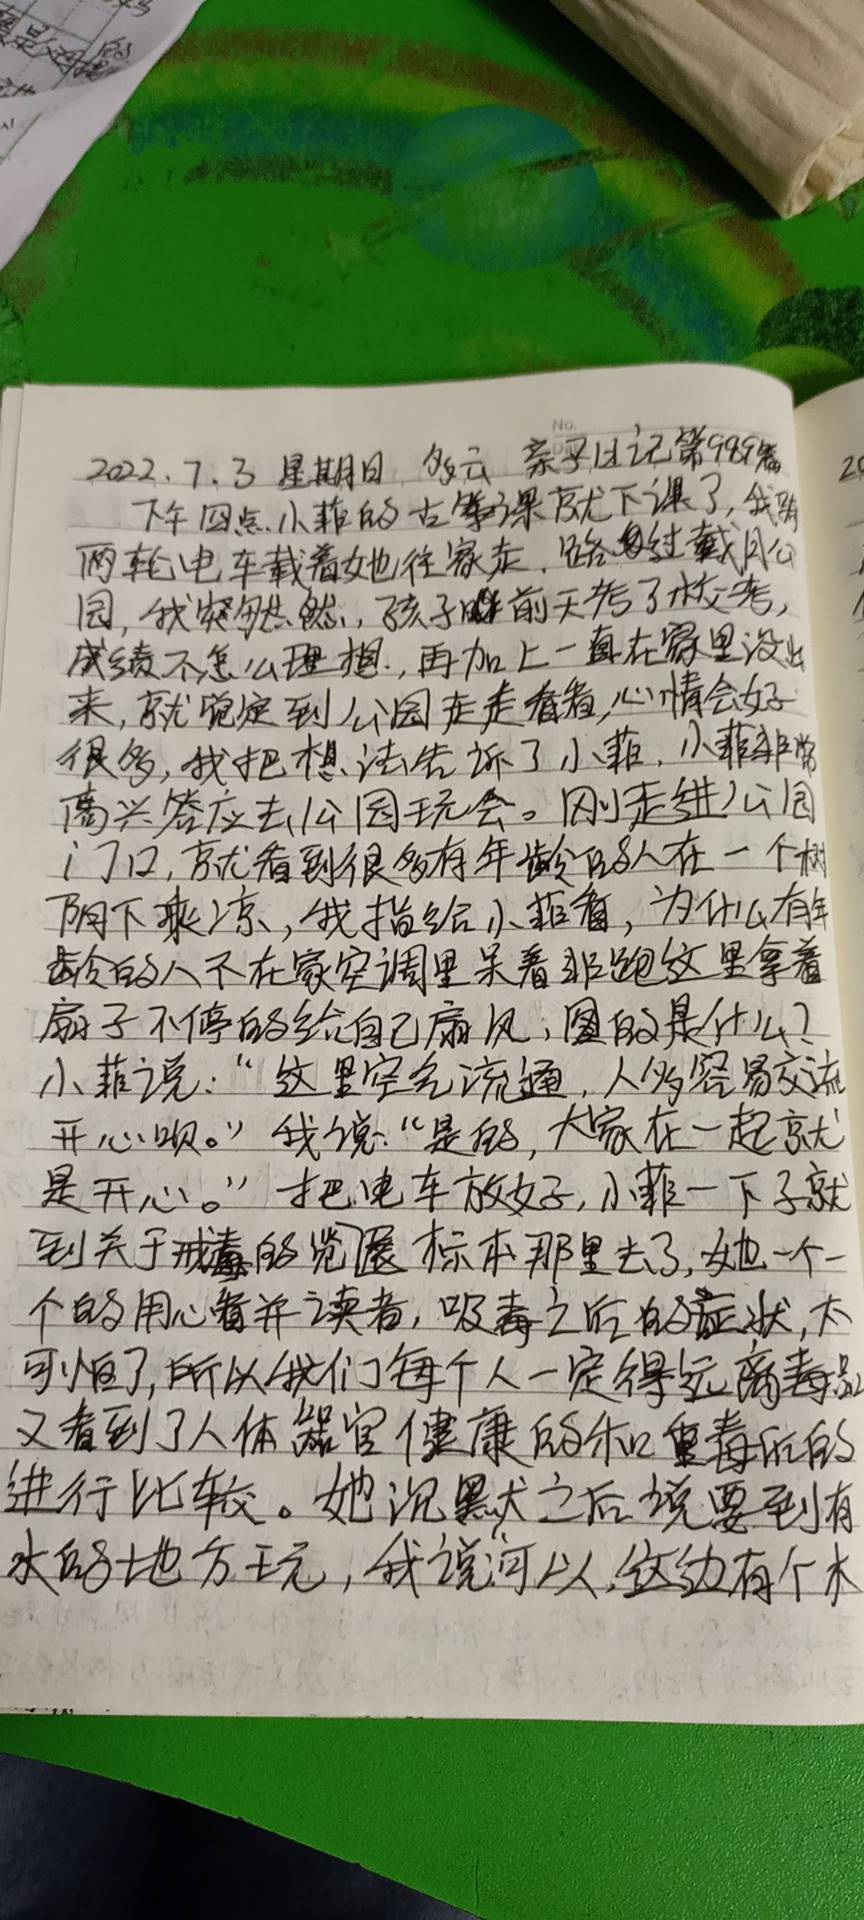 No.
2022.7.3 星期日 多云 亲子日记第989篇
下午四点小菲的古筝课就下课了,我骑
两轮电车载着她往家走,路过戴月公
园,我突然然,孩子前天考了校考,
成绩不怎么理想,再加上一直在家里没出
来,就觉定到公园走走看看,心情会好
很多,我把想法告诉了小菲,小菲非常
高兴答应去公园玩会。刚走进公园
门口,就看到很多有年龄的人在一个树
阴下乘凉,我指给小菲看,为什么有年
龄的人不在家空调里呆着非跑这里拿着
扇子不停的给自己扇风,图的是什么?
小菲说:“这里空气流通,人多容易交流
开心呗。”我说:“是的,大家在一起就
是开心。”把电车放好,小菲一下子就
到关于戒毒的览展标本那里去了,她一个一
个的用心看并读着,吸毒之后的症状,太
可怕了,所以我们每个人一定得远离毒品
又看到了人体器官健康的和毒后的
进行比较。她沉默之后说要到有
水的地方玩,我说可以,这边有个木